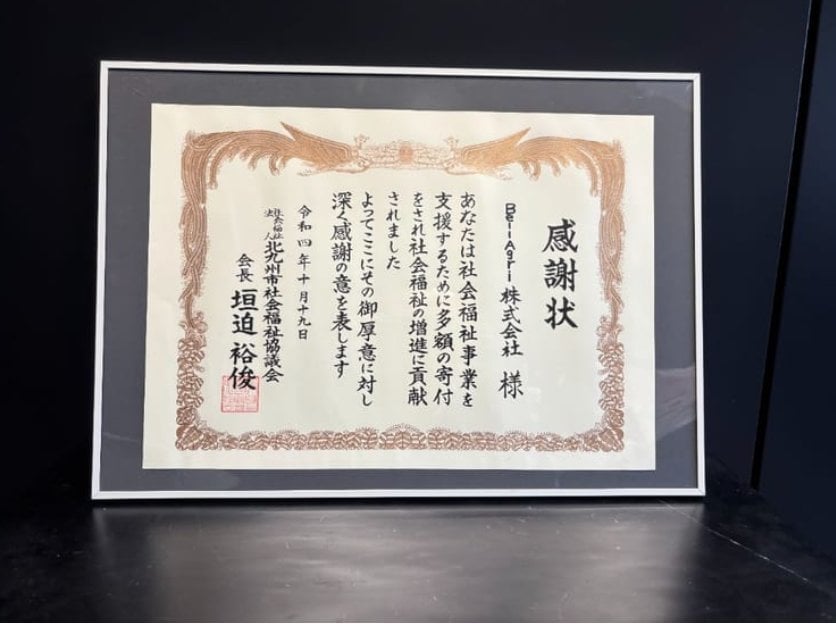 感謝状
Bell Agri 株式会社 様
あなたは社会福祉事業を
支援するために多額の寄付
をされ社会福祉の増進に貢献
されました
よってここにその御厚意に対し
深く感謝の意を表します
令和四年十月十九日
社会福祉法人北九州市社会福祉協議会
会長 垣迫裕俊